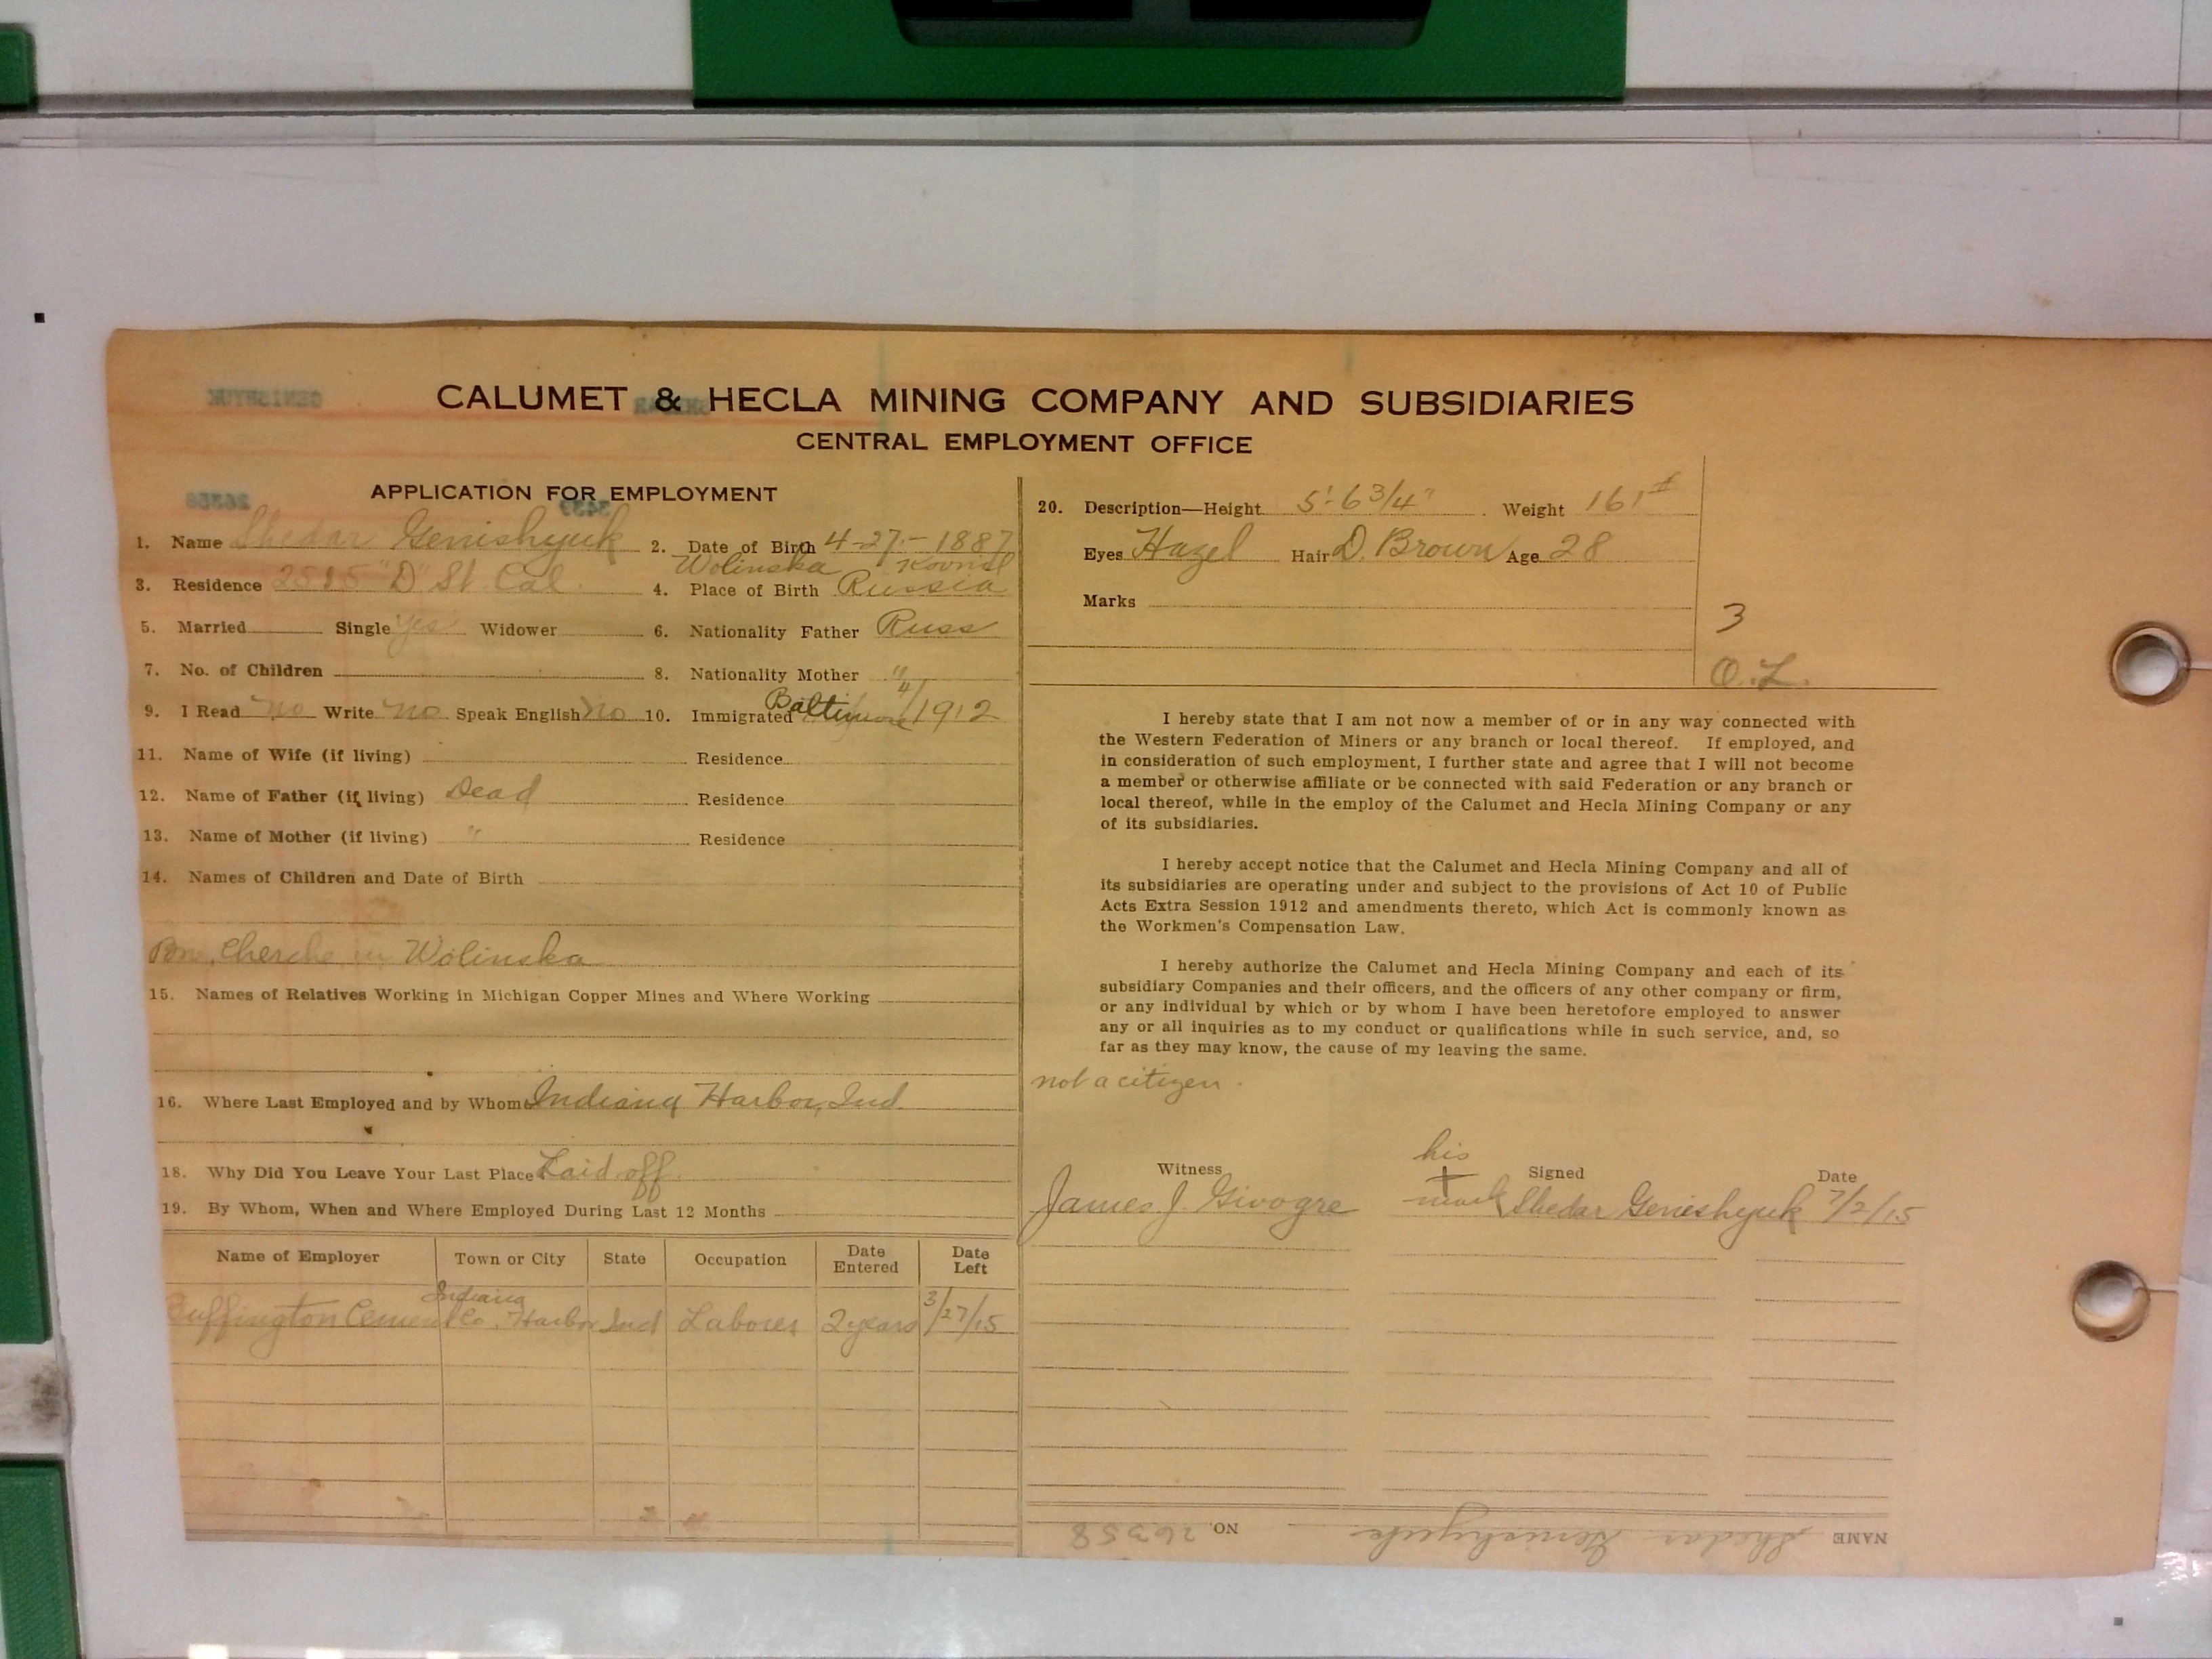 CALUMET & HECLA MINING COMPANY AND SUBSIDIARIES
CENTRAL EMPLOYMENT OFFICE
APPLICATION FOR EMPLOYMENT
1. Name Shedar Genishyuk 2. Date of Birth 4-27-1887
Wolinska
3. Residence "D" St. Cal. 4. Place of Birth Russia
5. Married Single yes Widower 6. Nationality Father Russ
7. No. of Children 8. Nationality Mother "
9. I Read no Write no Speak English no 10. Immigrated Baltimore 4/1912
11. Name of Wife (if living) Residence
12. Name of Father (if living) Dead Residence
13. Name of Mother (if living) " Residence
14. Names of Children and Date of Birth
in Wolinska
15. Names of Relatives Working in Michigan Copper Mines and Where Working
16. Where Last Employed and by Whom Indiana Harbor, Ind.
18. Why Did You Leave Your Last Place Laid off.
19. By Whom, When and Where Employed During Last 12 Months
Name of Employer Town or City State Occupation Date Entered Date Left
Buffington Cement Co. Indiana Harbor Ind Laborer 2 years 3/27/15
20. Description—Height 5'-6 3/4" Weight 161#
Eyes Hazel Hair D. Brown Age 28
Marks
3
O.L.
I hereby state that I am not now a member of or in any way connected with
the Western Federation of Miners or any branch or local thereof. If employed, and
in consideration of such employment, I further state and agree that I will not become
a member or otherwise affiliate or be connected with said Federation or any branch or
local thereof, while in the employ of the Calumet and Hecla Mining Company or any
of its subsidiaries.
I hereby accept notice that the Calumet and Hecla Mining Company and all of
its subsidiaries are operating under and subject to the provisions of Act 10 of Public
Acts Extra Session 1912 and amendments thereto, which Act is commonly known as
the Workmen's Compensation Law.
I hereby authorize the Calumet and Hecla Mining Company and each of its
subsidiary Companies and their officers, and the officers of any other company or firm,
or any individual by which or by whom I have been heretofore employed to answer
any or all inquiries as to my conduct or qualifications while in such service, and, so
far as they may know, the cause of my leaving the same.
not a citizen.
his
Witness Signed Date
James J. Givogre mark Shedar Genishyuk 7/2/15
NAME Shedar Genishyuk NO. 26358